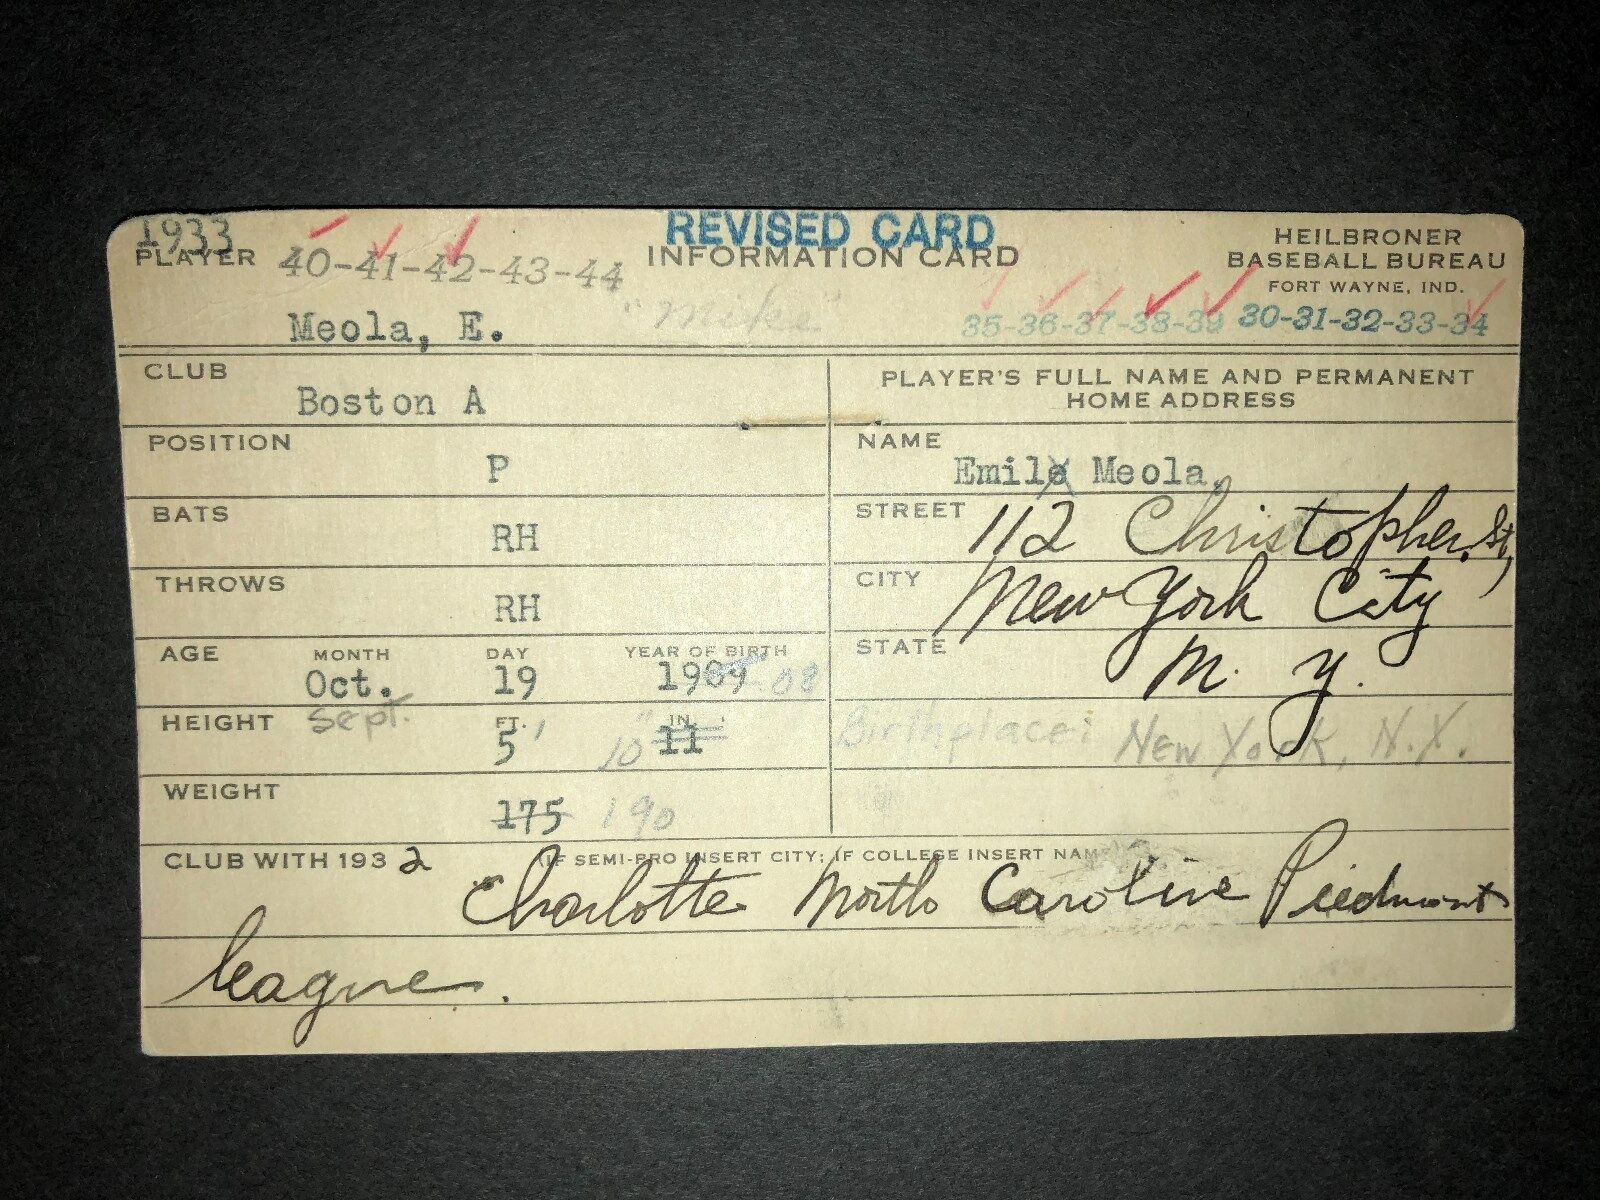 1933 REVISED CARD
PLAYER 40-41-42-43-44 INFORMATION CARD HEILBRONER
BASEBALL BUREAU
FORT WAYNE, IND.
Meola, E. "Mike" 35-36-37-38-39 30-31-32-33-34
CLUB Boston A
PLAYER'S FULL NAME AND PERMANENT
HOME ADDRESS
POSITION P
NAME Emile Meola,
BATS RH
STREET 112 Christopher St,
THROWS RH
CITY New York City
STATE N. Y.
AGE MONTH DAY YEAR OF BIRTH
Oct. 19 1909 08
HEIGHT Sept. FT. IN.
5' 10" 11
Birthplace: New York, N.Y.
WEIGHT 175 190
CLUB WITH 1932 (IF SEMI-PRO INSERT CITY; IF COLLEGE INSERT NAME
Charlotte North Caroline Piedmont
league.